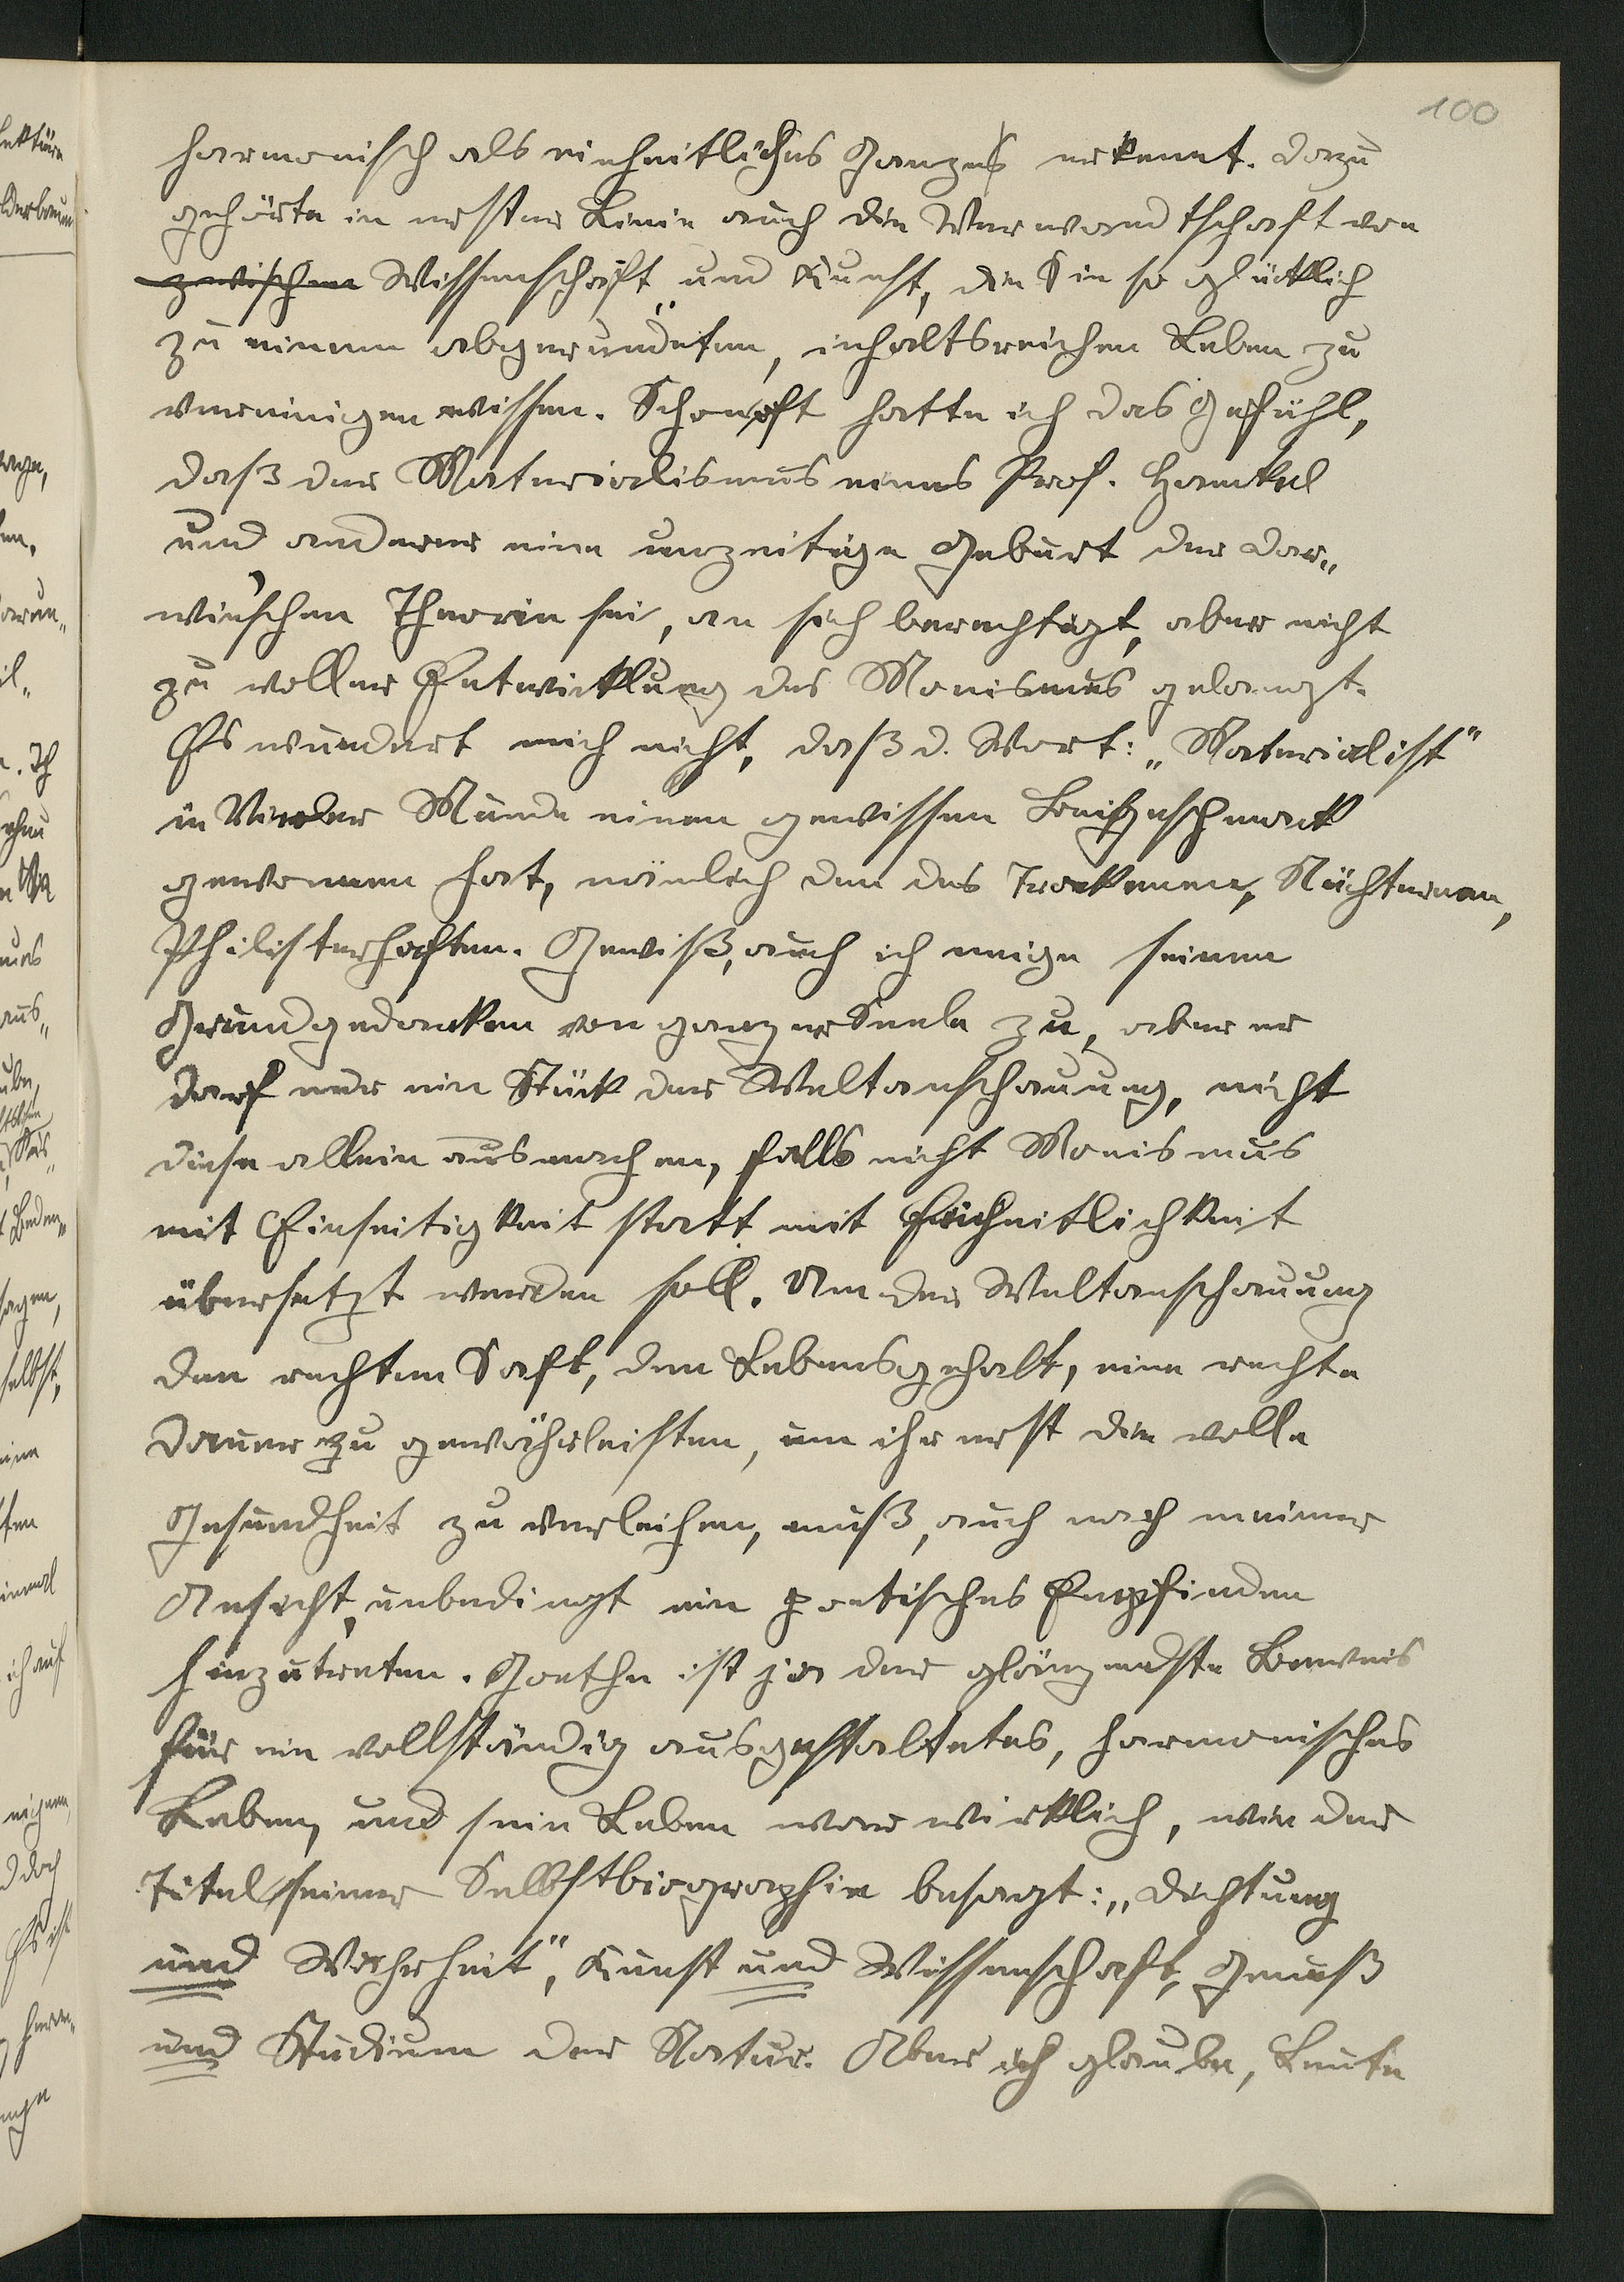 100
harmonisch als einheitliches Ganzes erkennt. Dazu
gehörte in erster Linie auch die Verwandtschaft von
zwischen Wissenschaft und Kunst, die Sie so glücklich
zu einem abgerundeten, inhaltsreichen Leben zu
vereinigen wissen. Schon oft hatte ich das Gefühl,
daß der Materialismus eines Prof. Haeckel
und anderer eine unzeitige Geburt der Dar„
win'schen Theorie sei, an sich berechtigt, aber nicht
zu voller Entwicklung des Monismus gelangt.
Es wundert mich nicht, daß d. Wort: „Materialist"
in Vieler Munde einen gewissen Beigeschmack
gewonnen hat, nämlich den des Trockenen, Nüchternen,
Philisterhaften. Gewiß, auch ich neige seinem
Grundgedanken von ganzer Seele zu, aber er
darf nur ein Stück der Weltanschauung, nicht
diese allein ausmachen, falls nicht Monismus
mit Einseitigkeit statt mit Einheitlichkeit
übersetzt werden soll. Um der Weltanschauung
den rechten Saft, den Lebensgehalt, eine rechte
Dauer zu gewährleisten, um ihr erst die volle
Gesundheit zu verleihen, muß, auch nach meiner
Ansicht, unbedingt ein poetisches Empfinden
hinzutreten. Goethe ist ja der glänzendste Beweis
für ein vollständig ausgestaltetes, harmonisches
Leben, und sein Leben war wirklich, wie der
Titel seiner Selbstbiographie besagt: „Dichtung
und Wahrheit", Kunst und Wissenschaft, Genuß
und Studium der Natur. Aber ich glaube, Leute